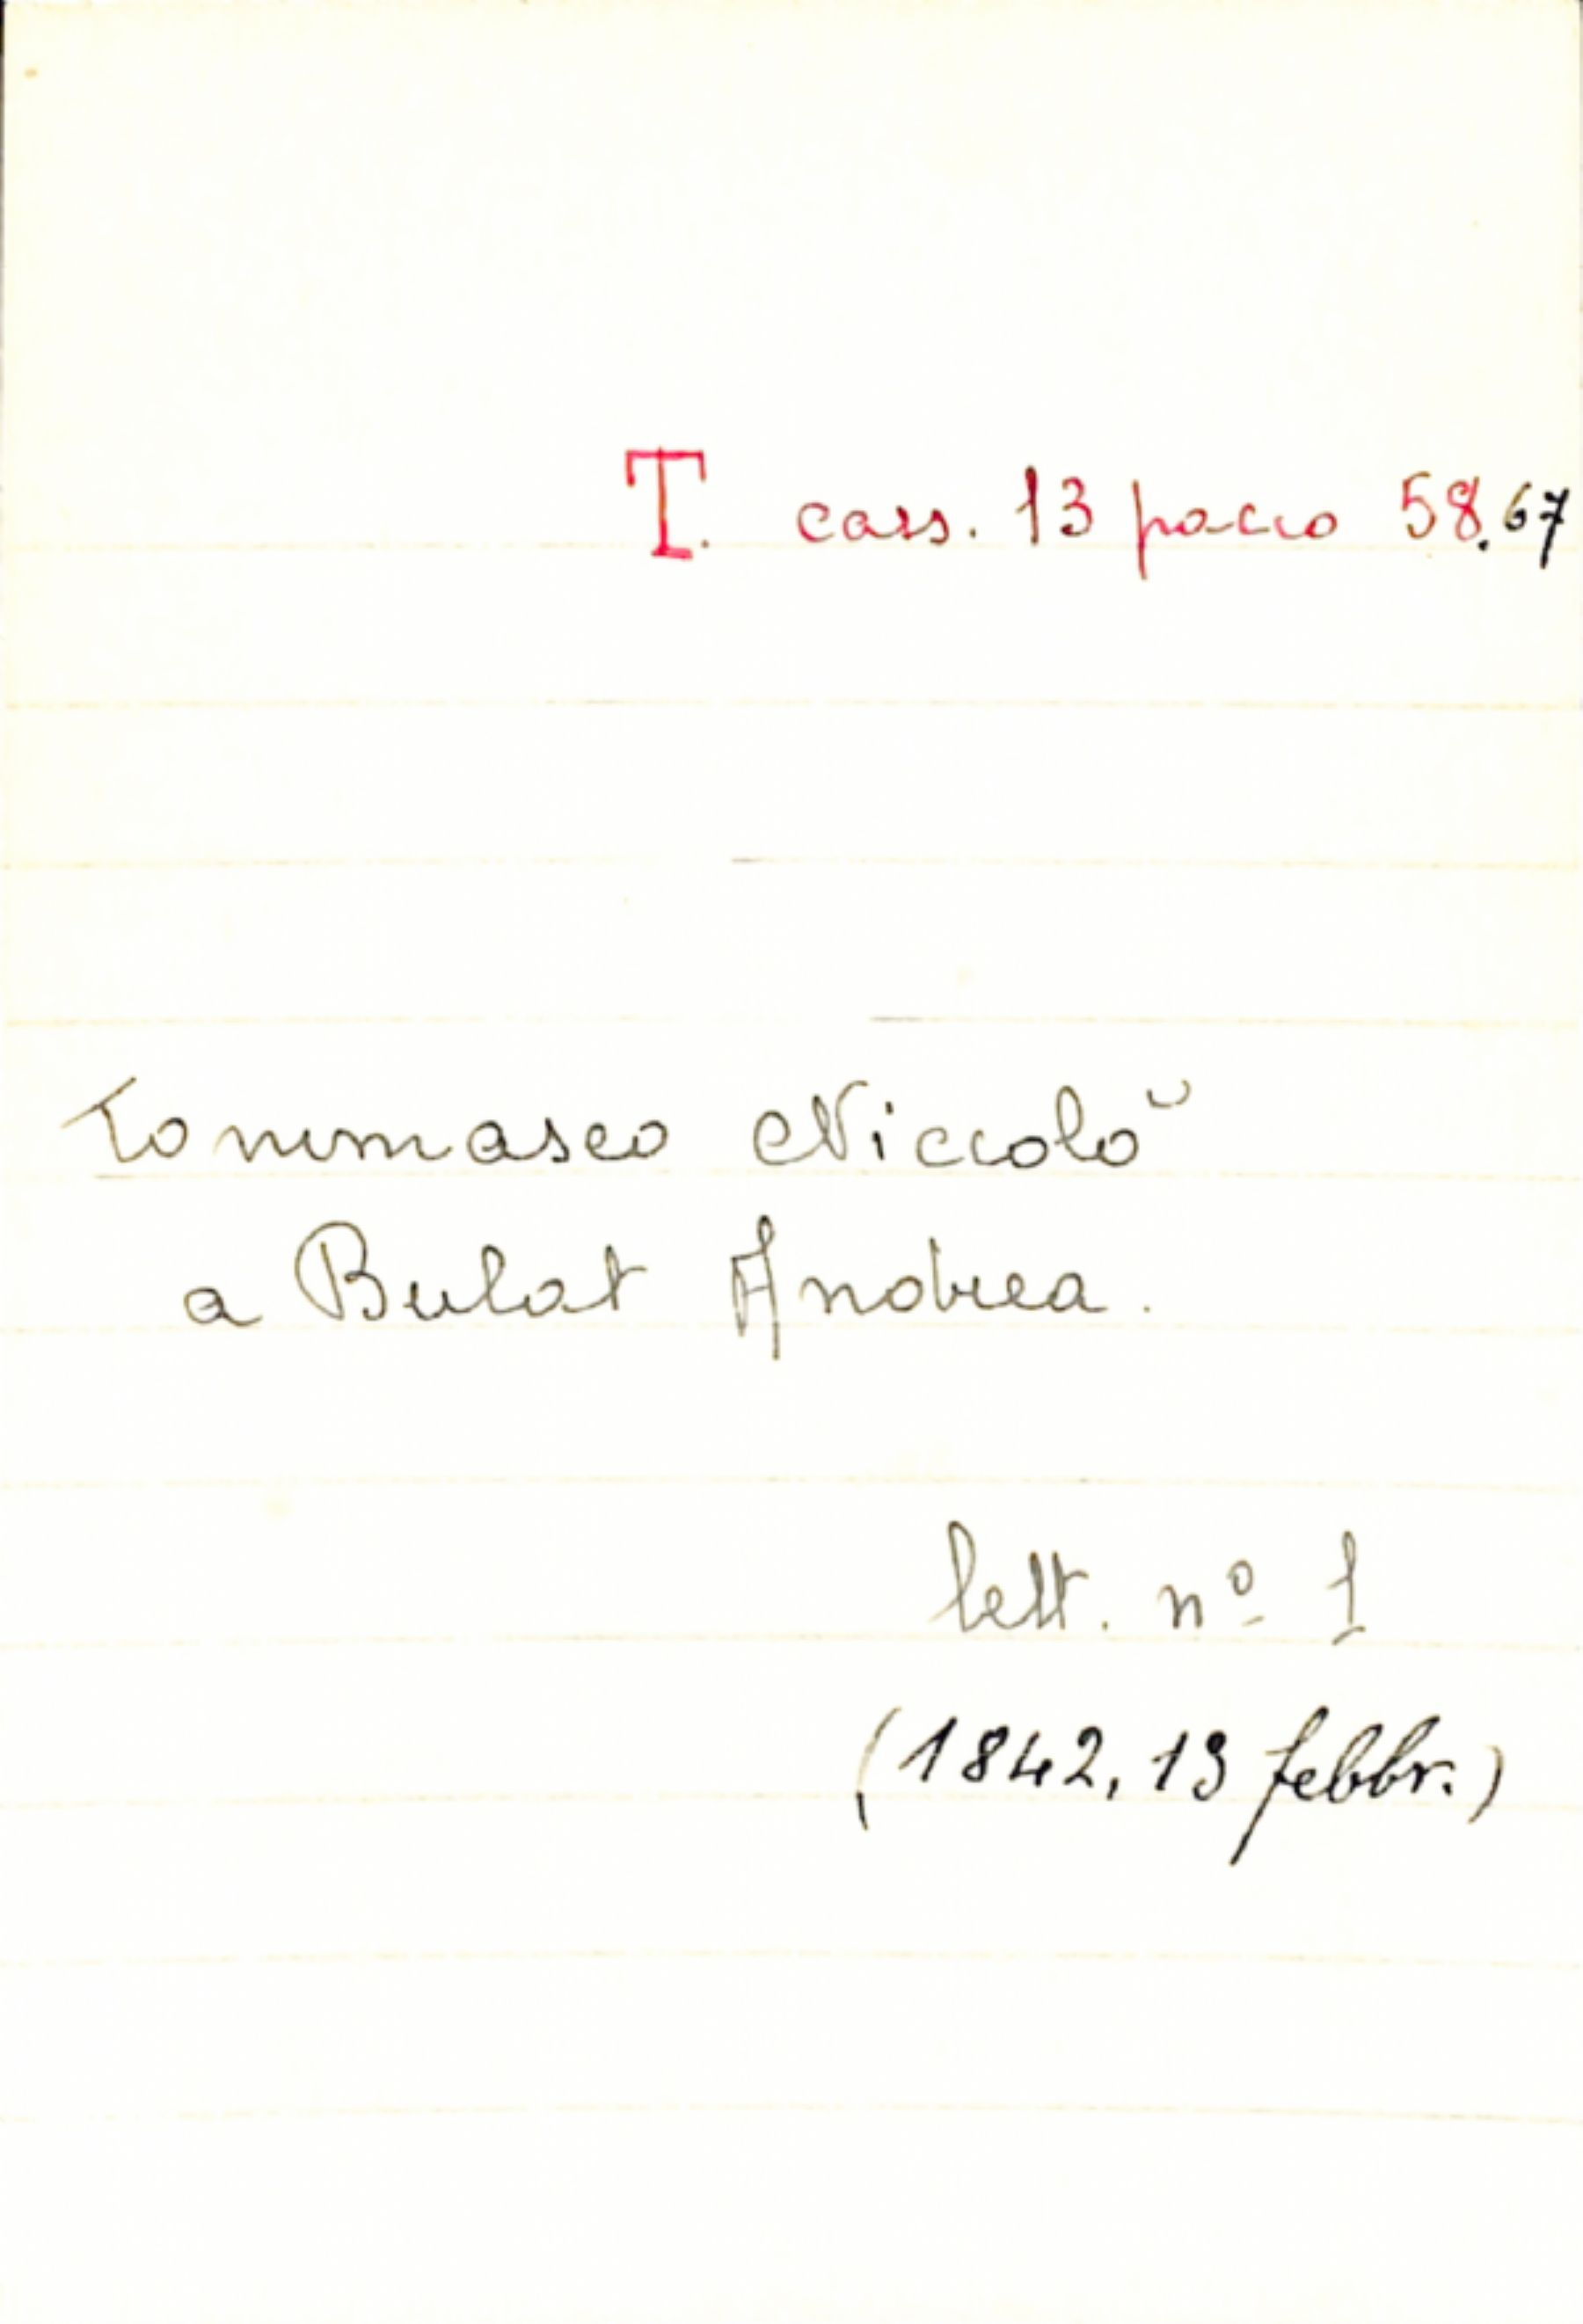 T. cass. 13 pacco 58.67
Tommaseo Niccolò
a Bulat Andrea.
lett. nº 1
(1842, 13 febbr.)